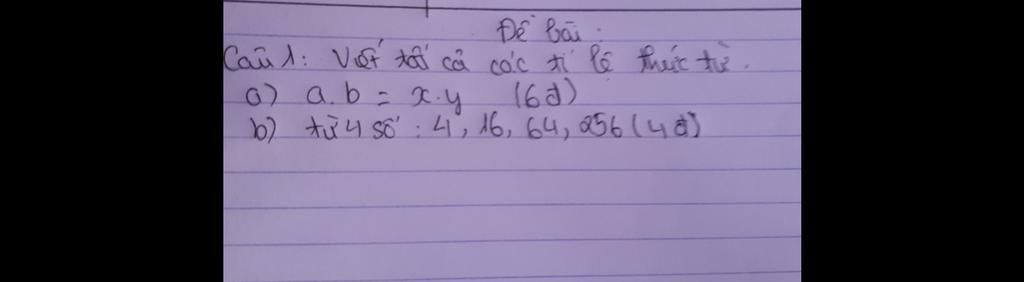 Đề bài :
Câu 1 : Viết tất cả các tỉ lệ thức từ .
a) a.b = x.y (6đ)
b) từ 4 số : 4, 16, 64, 256 (4đ)